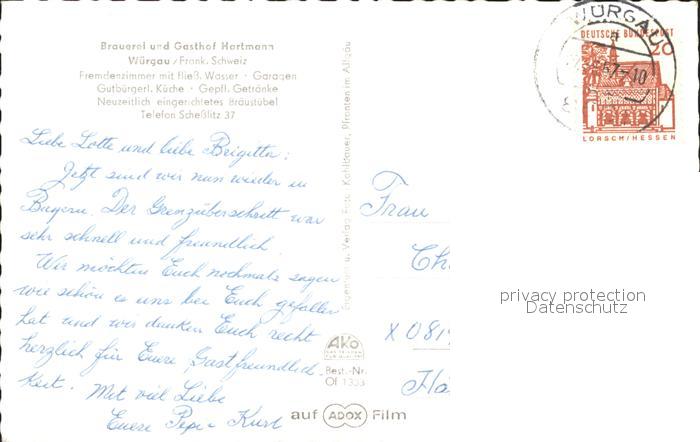 Brauerei und Gasthof Hartmann
Würgau / Fränk. Schweiz
Fremdenzimmer mit fließ. Wasser · Garagen
Gutbürgerl. Küche · Gepfl. Getränke
Neuzeitlich eingerichtetes Bräustübel
Telefon Scheßlitz 37
Liebe Lotte und liebe Brigitta;
Jetzt sind wir nun wieder in
Bayern. Der Grenzübertritt war
sehr schnell und freundlich.
Wir möchten Euch nochmals sagen
wie schön es uns bei Euch gefallen
hat und wir danken Euch recht
herzlich für Eure Gastfreundlich-
keit. Mit viel Liebe
Eure Pepi u Kurt
Eigentum u. Verlag Franz Kohlbauer, Pfronten im Allgäu
AKO
Best.-Nr.
Of 1333
auf ADOX Film
Frau
Ch
X 081
Ha
WÜRGAU
67-10
DEUTSCHE BUNDESPOST
20
LORSCH/HESSEN
privacy protection
Datenschutz